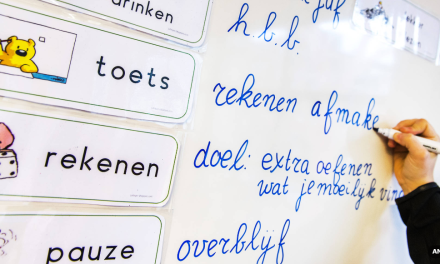 drinken
juf
h.b.b.
toets
rekenen afmake
rekenen
doel: extra oefenen
wat je moeilijk vind
pauze
overblijf
AN